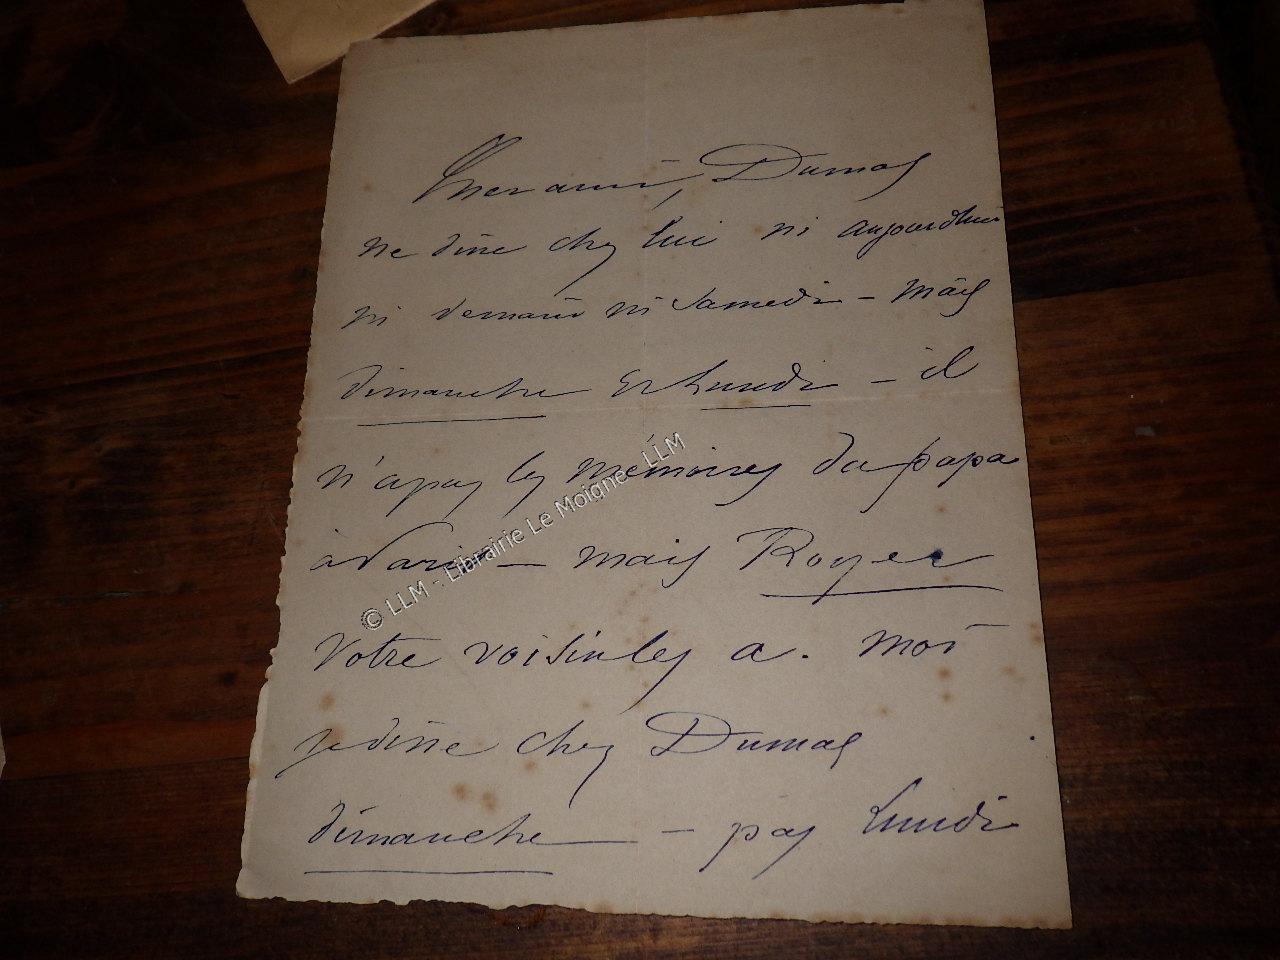 Cher ami, Dumas
ne dîne chez lui ni aujourdhui
ni demain ni Samedi – mais
dimanche et Lundi – il
n'a pas les Mémoires du papa
à Paris – mais Royer
votre voisin les a. Moi
je dîne chez Dumas
dimanche – pas Lundi
© LLM - Librairie Le Moigne - LLM